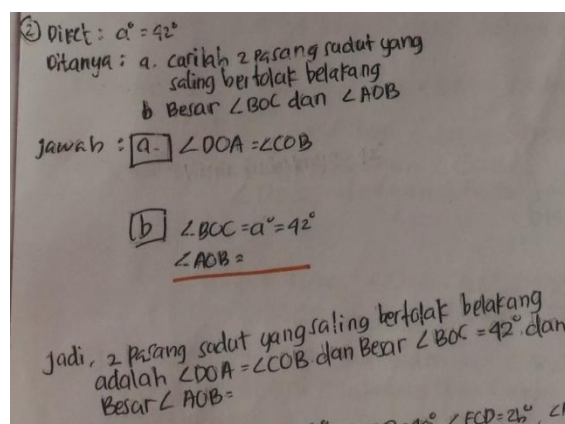 ② Diket : a° = 42°
Ditanya : a. carilah 2 pasang sudut yang
saling bertolak belakang
b Besar ∠BOC dan ∠AOB
Jawab : a. ∠DOA = ∠COB
b ∠BOC = a° = 42°
∠AOB =
Jadi, 2 Pasang sudut yang saling bertolak belakang
adalah ∠DOA = ∠COB. dan Besar ∠BOC = 42°. dan
Besar ∠ AOB =
∠ECD = 2b°